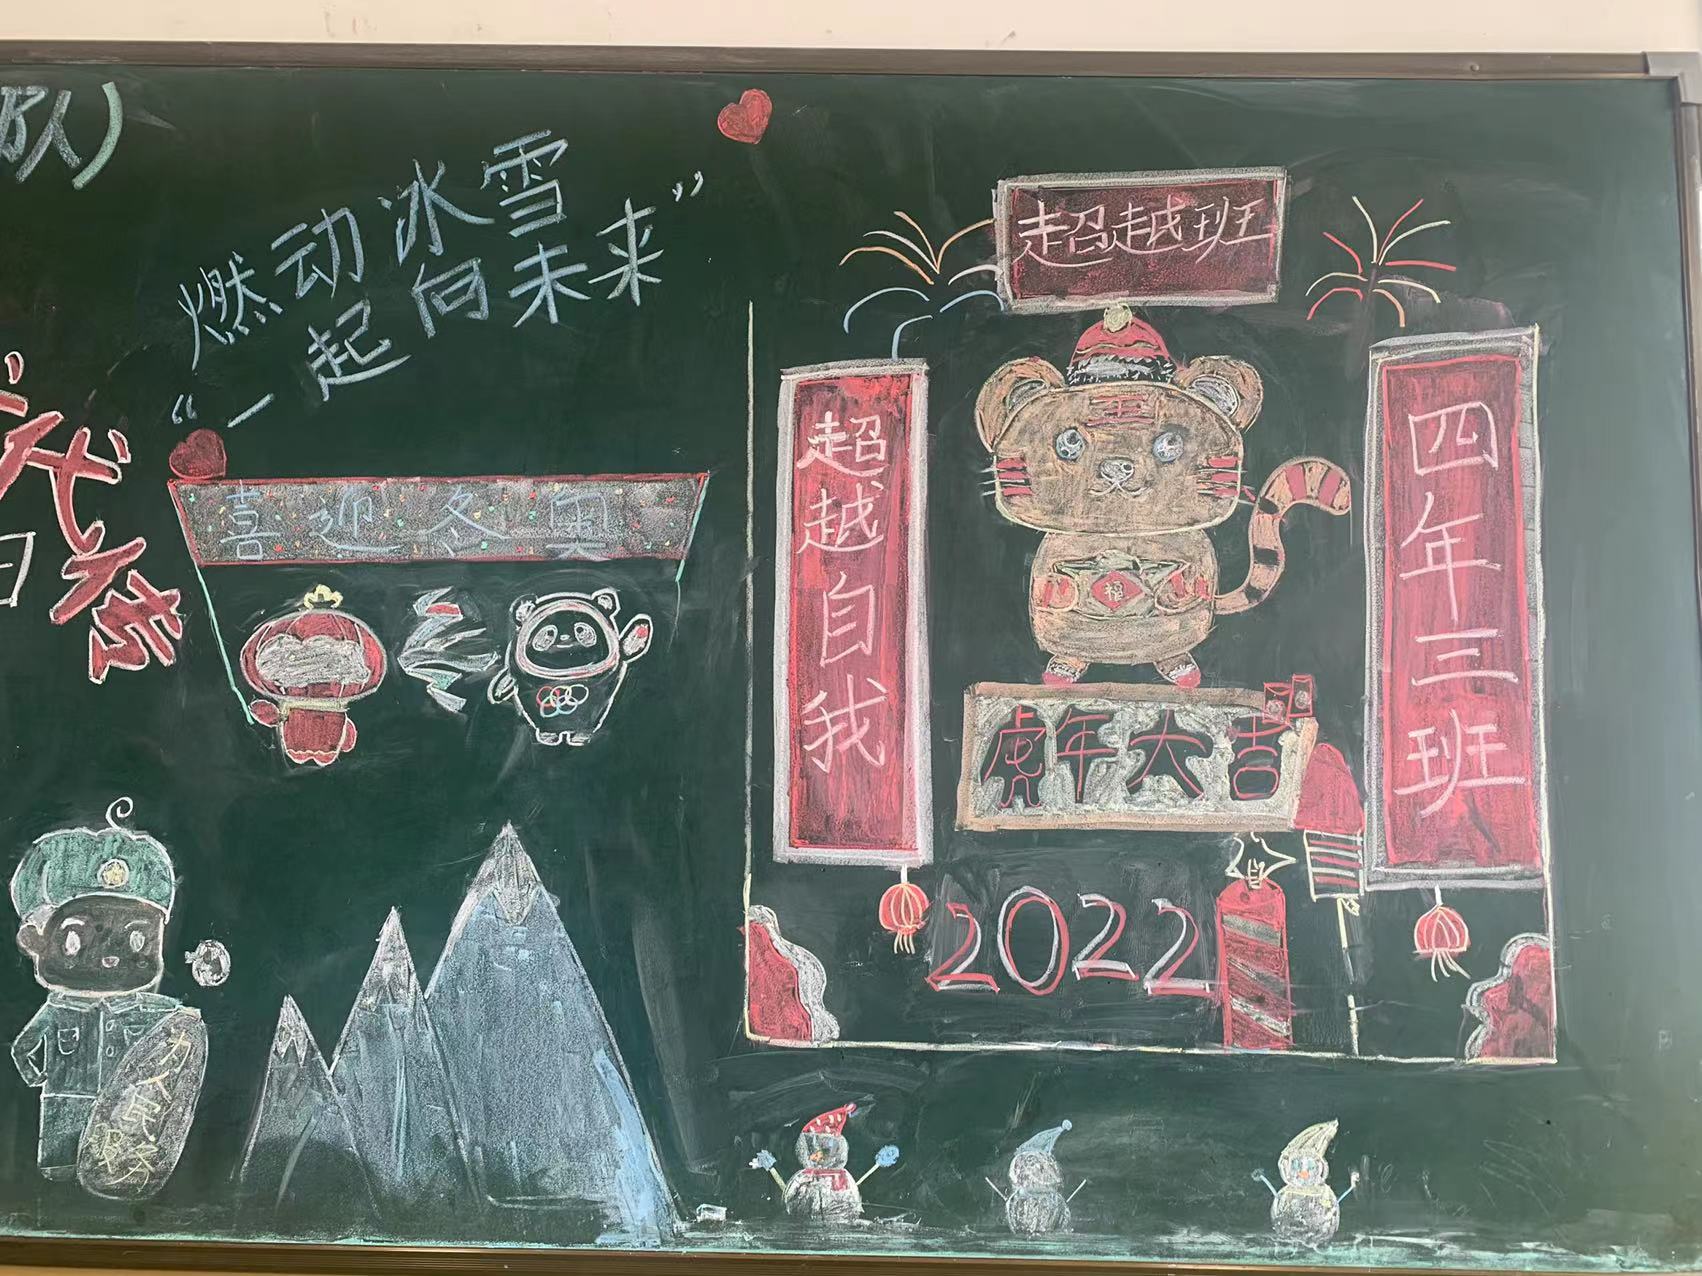 队）
燃动冰雪
“一起向未来”
喜迎冬奥
超越班
超越自我
四年三班
王
福
虎年大吉
2022